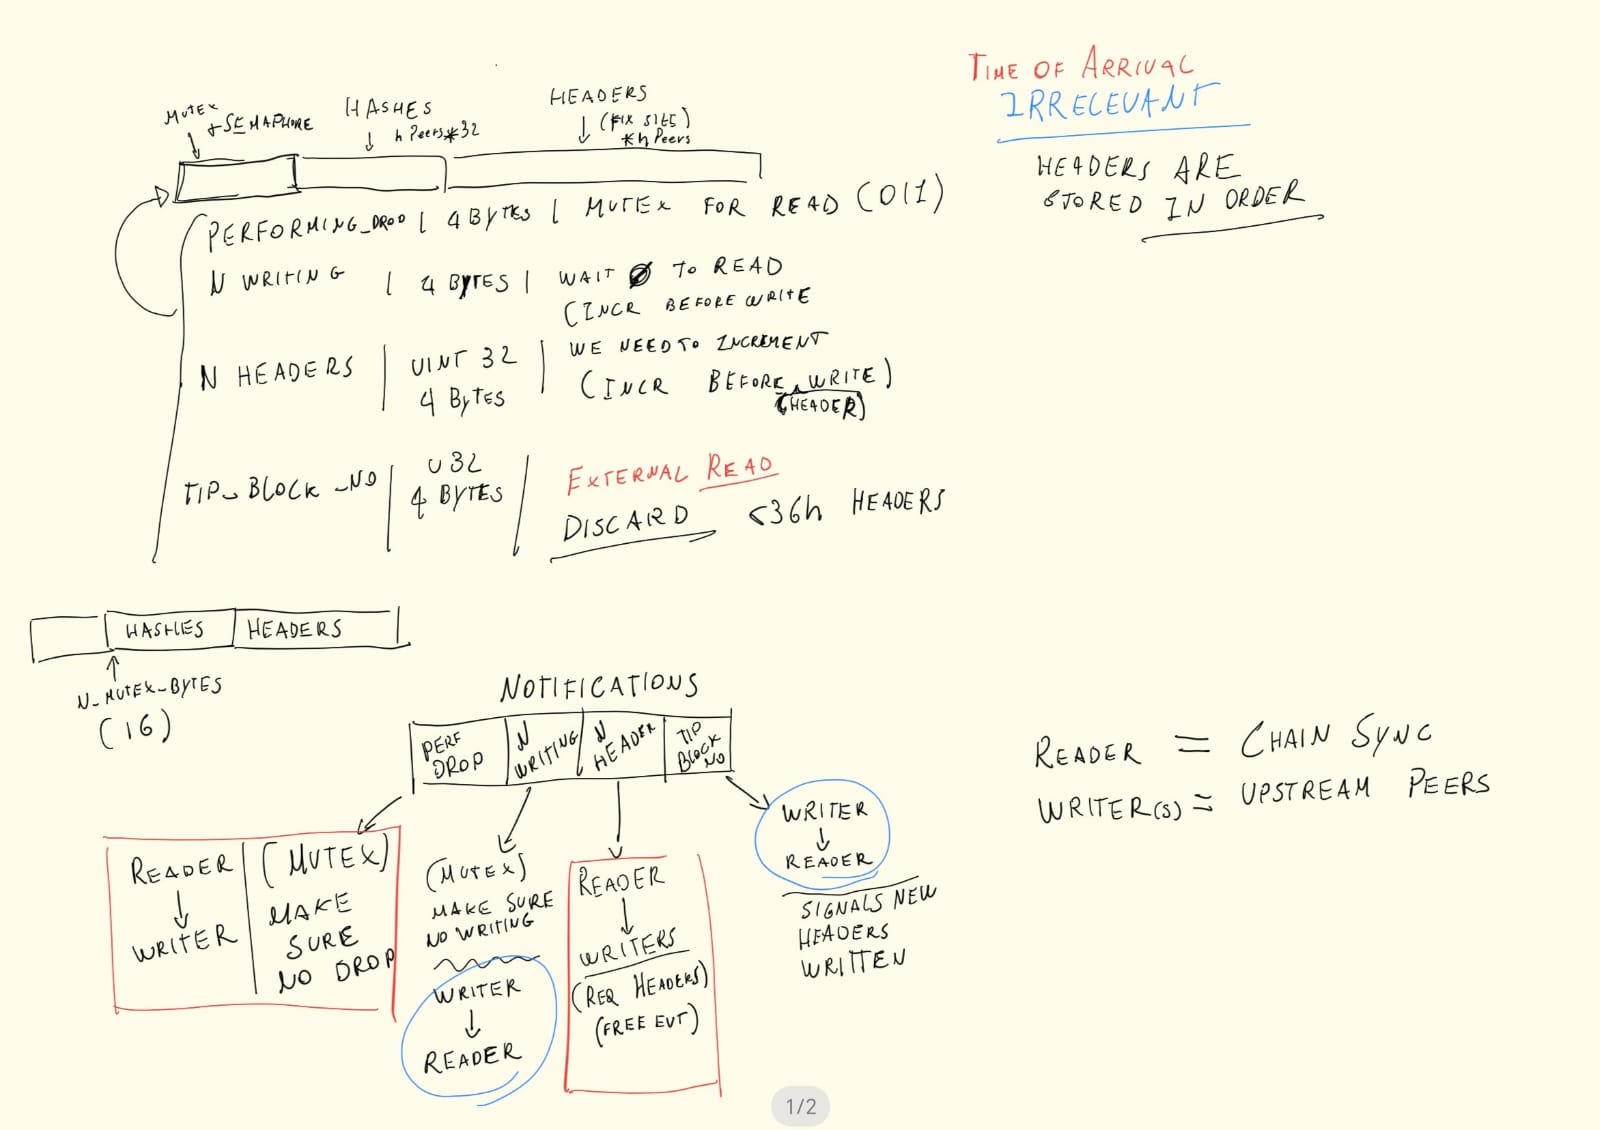 MUTEX
+ SEMAPHORE
HASHES
n Peers*32
HEADERS
(FIX SIZE)
*n Peers
TIME OF ARRIVAL
IRRELEVANT
HEADERS ARE
STORED IN ORDER
PERFORMING_DROP | 4 BYTES | MUTEX FOR READ (0|1)
N WRITING | 4 BYTES | WAIT 0 TO READ
(INCR BEFORE WRITE
N HEADERS | UINT 32 | WE NEED TO INCREMENT
4 BYTES (INCR BEFORE WRITE)
(HEADER)
TIP_BLOCK_NO | U32 | EXTERNAL READ
4 BYTES
DISCARD <36h HEADERS
HASHES | HEADERS
N_MUTEX_BYTES
(16)
NOTIFICATIONS
PERF
DROP
N
WRITING
N
HEADER
TIP
BLOCK
NO
READER = CHAIN SYNC
WRITER(S) = UPSTREAM PEERS
READER
↓
WRITER
(MUTEX)
MAKE
SURE
NO DROP
(MUTEX)
MAKE SURE
NO WRITING
WRITER
↓
READER
READER
↓
WRITERS
(REQ HEADERS)
(FREE EVT)
WRITER
↓
READER
SIGNALS NEW
HEADERS
WRITTEN
1/2